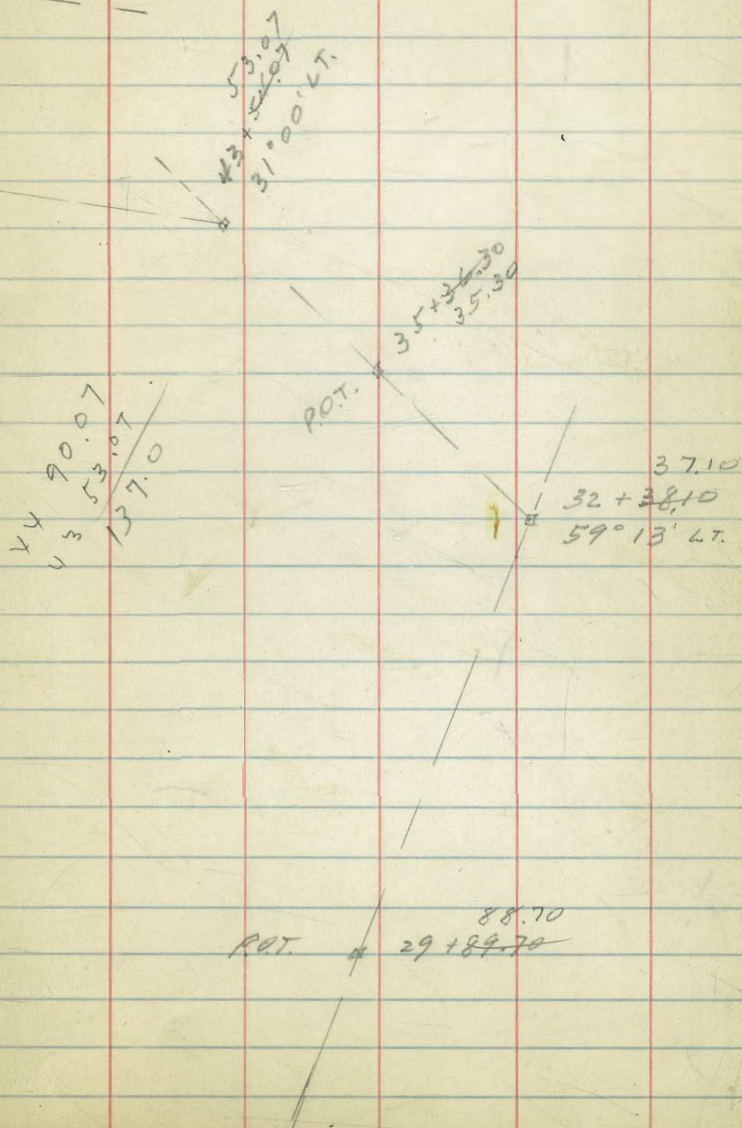 53.07
43 + 54.07
31° 00' LT.
35 + 36.30
35.30
P.O.T.
44 90.07
43 53.07
137.0
37.10
32 + 38.10
59° 13' LT.
88.70
P.O.T. 29 + 89.70